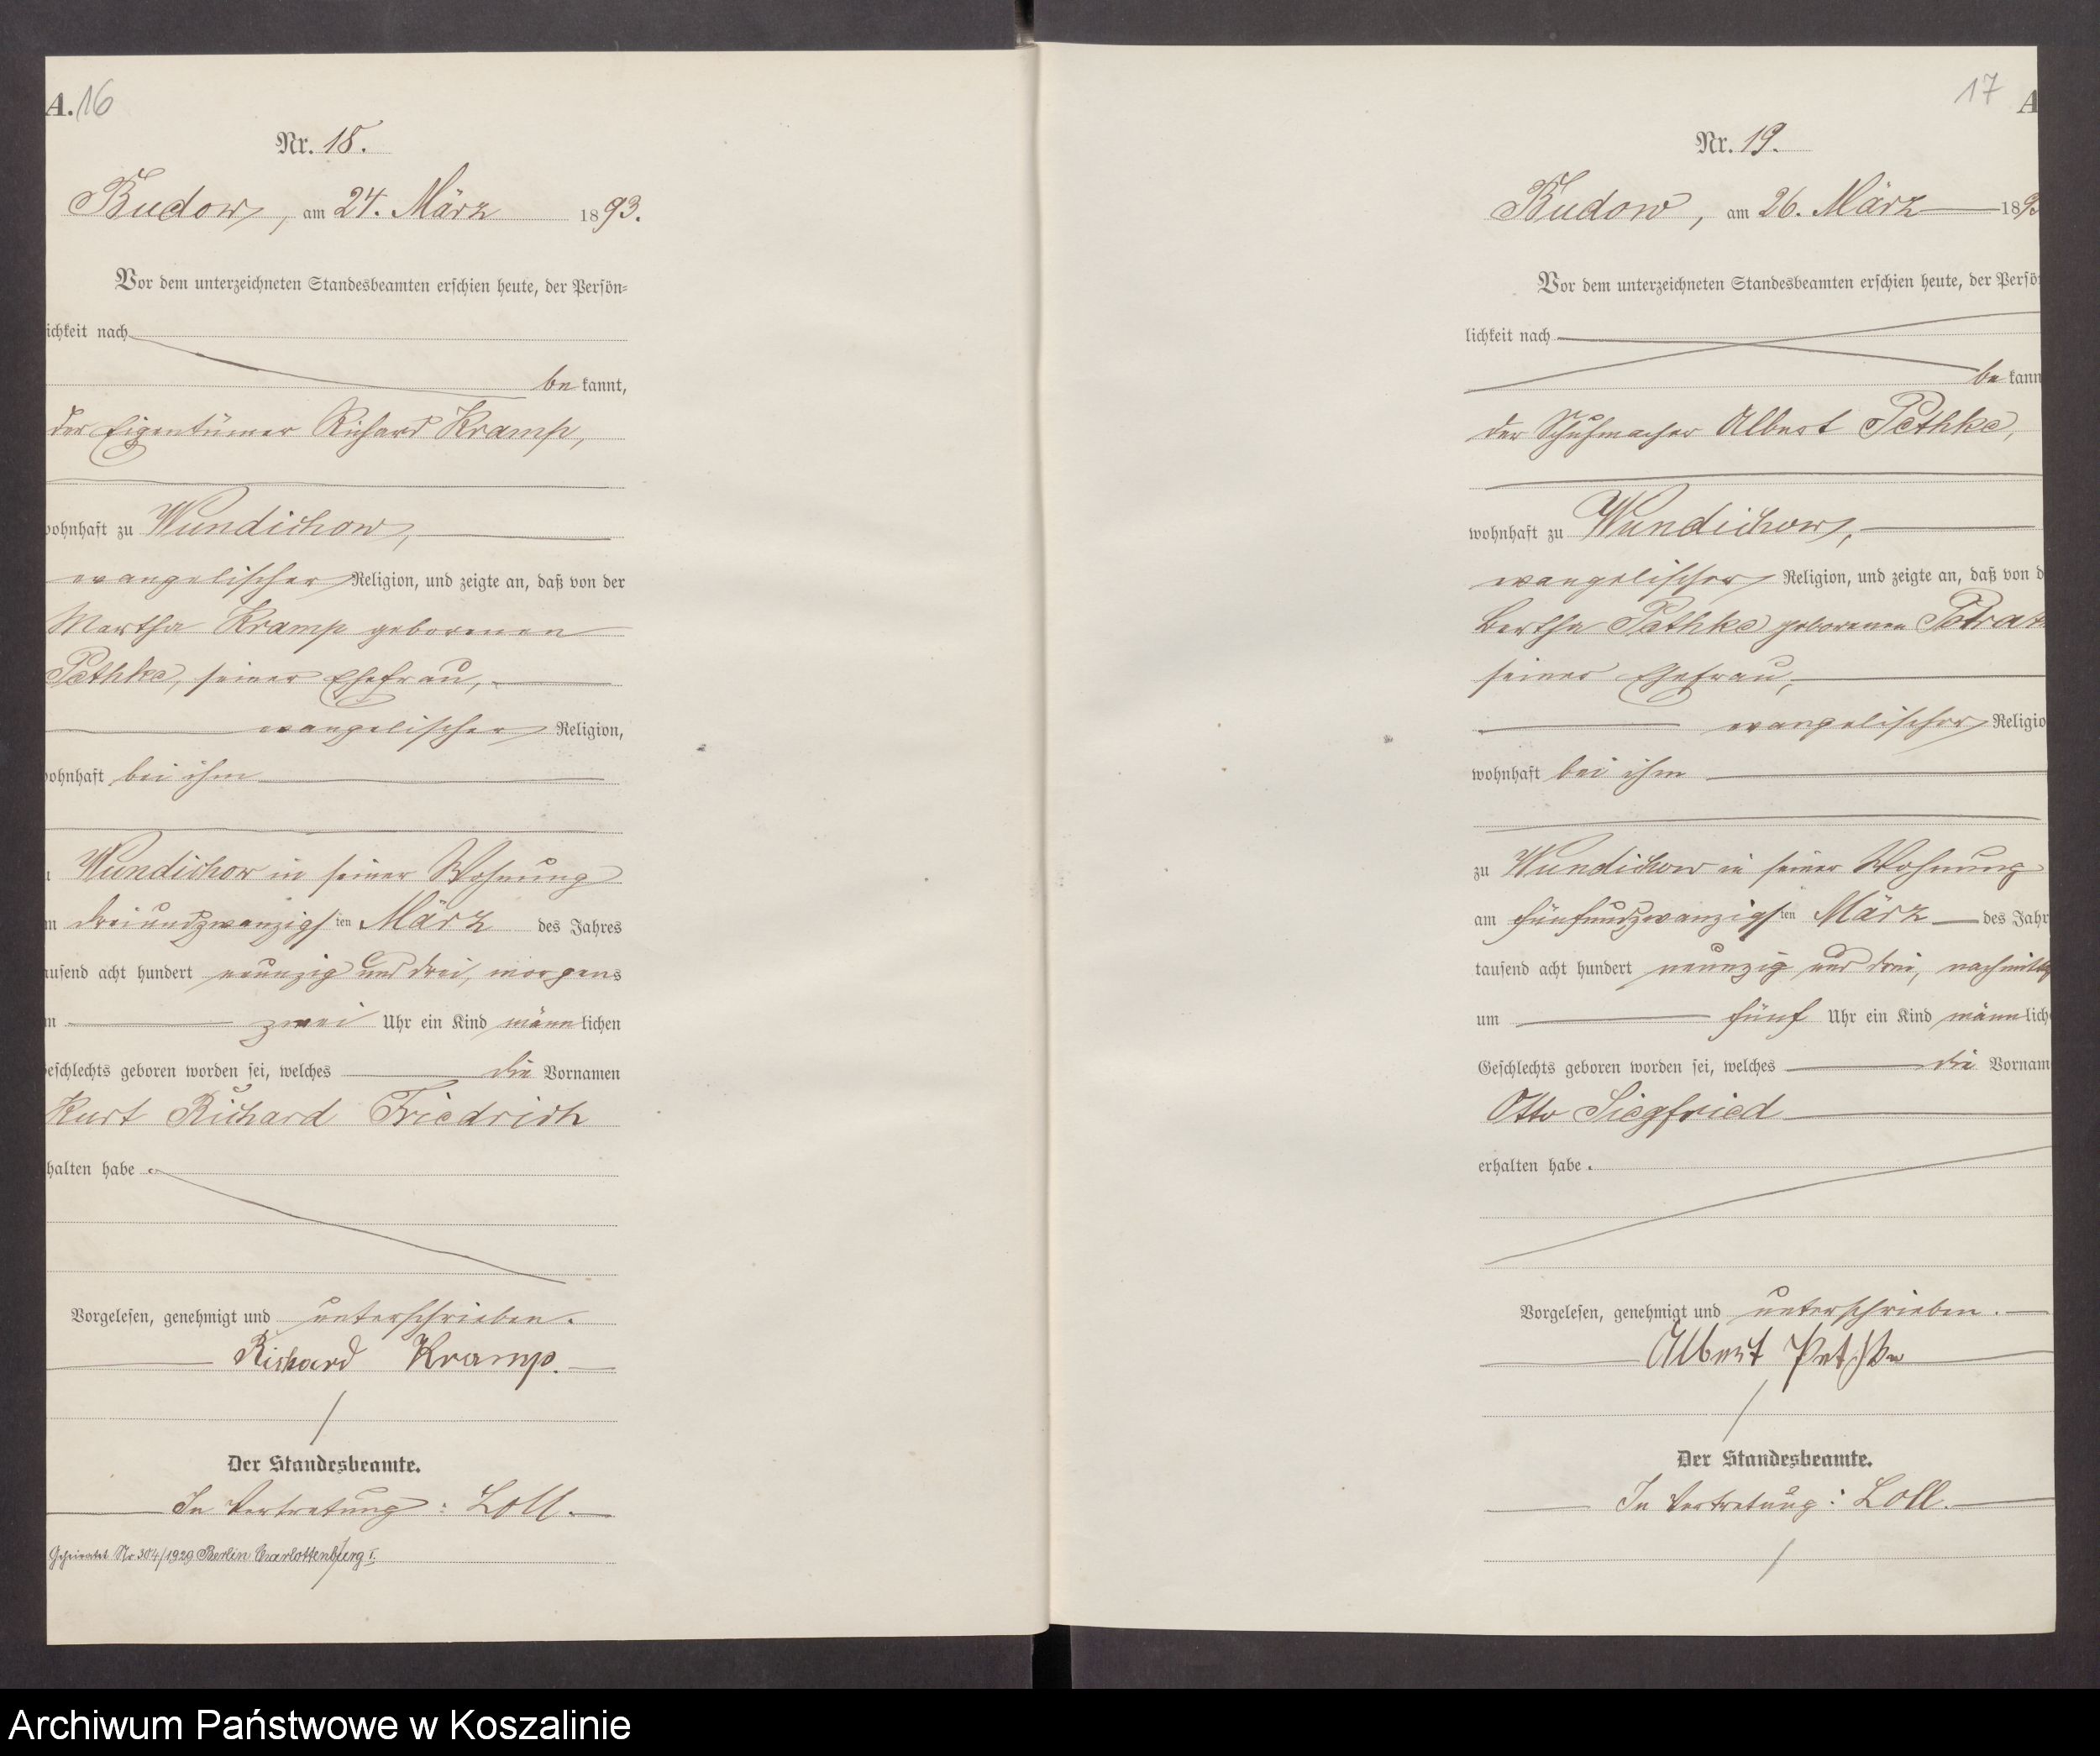 A. 16
Nr. 18.
Budow, am 24. März 1893.
Vor dem unterzeichneten Standesbeamten erschien heute, der Persön=
ichkeit nach
be kannt,
der Eigentümer Richard Kramp,
wohnhaft zu Wundichow,
evangelischer Religion, und zeigte an, daß von der
Martha Kramp geborenen
Pethke, seiner Ehefrau,
evangelischer Religion,
wohnhaft bei ihm
Wundichow in seiner Wohnung
m dreiundzwanzigsten März des Jahres
ausend acht hundert neunzig und drei, morgens
m zwei Uhr ein Kind männlichen
eschlechts geboren worden sei, welches die Vornamen
Kurt Richard Friedrich
halten habe.
Vorgelesen, genehmigt und unterschrieben.
Richard Kramp.
Der Standesbeamte.
In Vertretung: Loll.
Geheiratet Nr 304/1929 Berlin Charlottenburg I.
17 A
Nr. 19.
Budow, am 26. März 189
Vor dem unterzeichneten Standesbeamten erschien heute, der Persö
lichkeit nach
be kann
der Schuhmacher Albert Pethke,
wohnhaft zu Wundichow,
evangelischer Religion, und zeigte an, daß von d
Bertha Pethke geborenen
seiner Ehefrau,
evangelischer Religio
wohnhaft bei ihm
zu Wundichow in seiner Wohnung
am fünfundzwanzigsten März des Jahr
tausend acht hundert neunzig und drei, nachmittag
um fünf Uhr ein Kind männlich
Geschlechts geboren worden sei, welches die Vornam
Otto Siegfried
erhalten habe.
Vorgelesen, genehmigt und unterschrieben.
Albert Pethke
Der Standesbeamte.
In Vertretung: Loll.
Archiwum Państwowe w Koszalinie